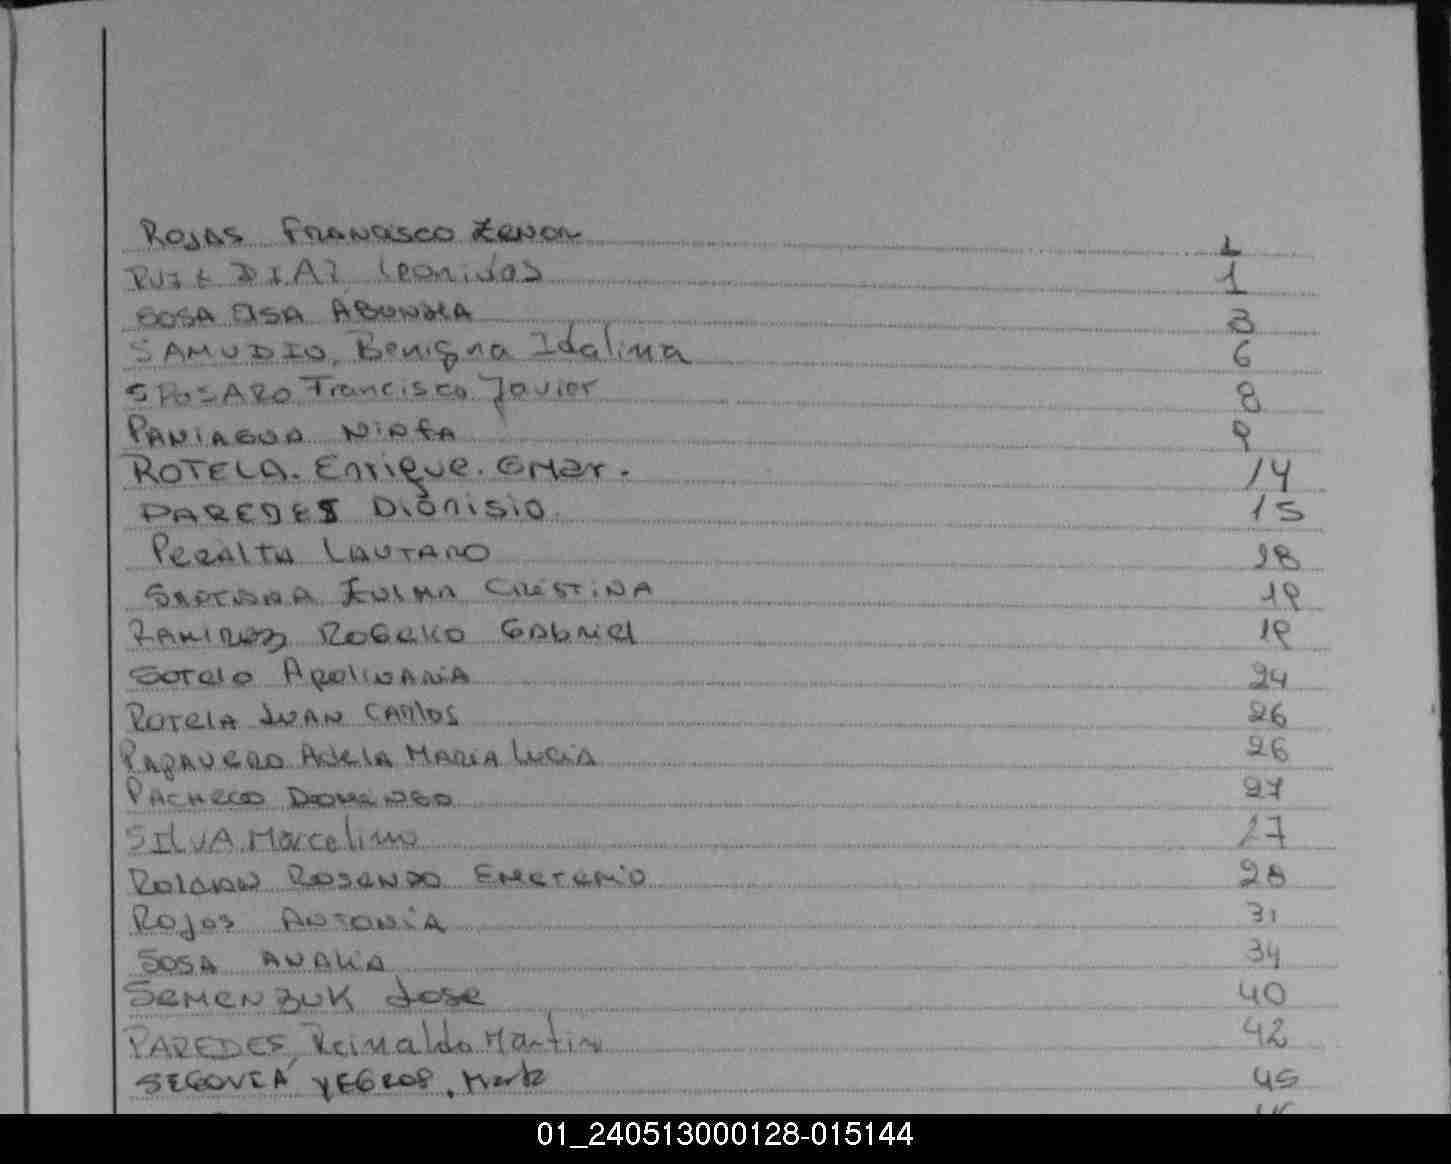 ROJAS FRANCISCO ZENON 1
RUIZ DIAZ Leonidas 1
SOSA ELSA ABUNDIA 3
SAMUDIO, Benigna Idalina 6
SPOSARO Francisco Javier 8
PANIAGUA NINFA 9
ROTELA. Enrique. OMar. 14
PAREDES Dionisio 15
PERALTA LAUTARO 18
ZULMA CRISTINA 19
RAMIREZ ROGELIO GABRIEL 19
SOTELO APOLINARIA 24
ROTELA JUAN CARLOS 26
PAPAVERO ADELA MARIA LUCIA 26
PACHECO DOMINGO 27
SILVA, Marcelino 27
ROLDAN ROSENDO EMETERIO 28
ROJAS ANTONIA 31
SOSA ANALIA 34
SEMENZUK JOSE 40
PAREDES, Reinaldo Martin 42
SEGOVIA YEGROS, 45
01_240513000128-015144